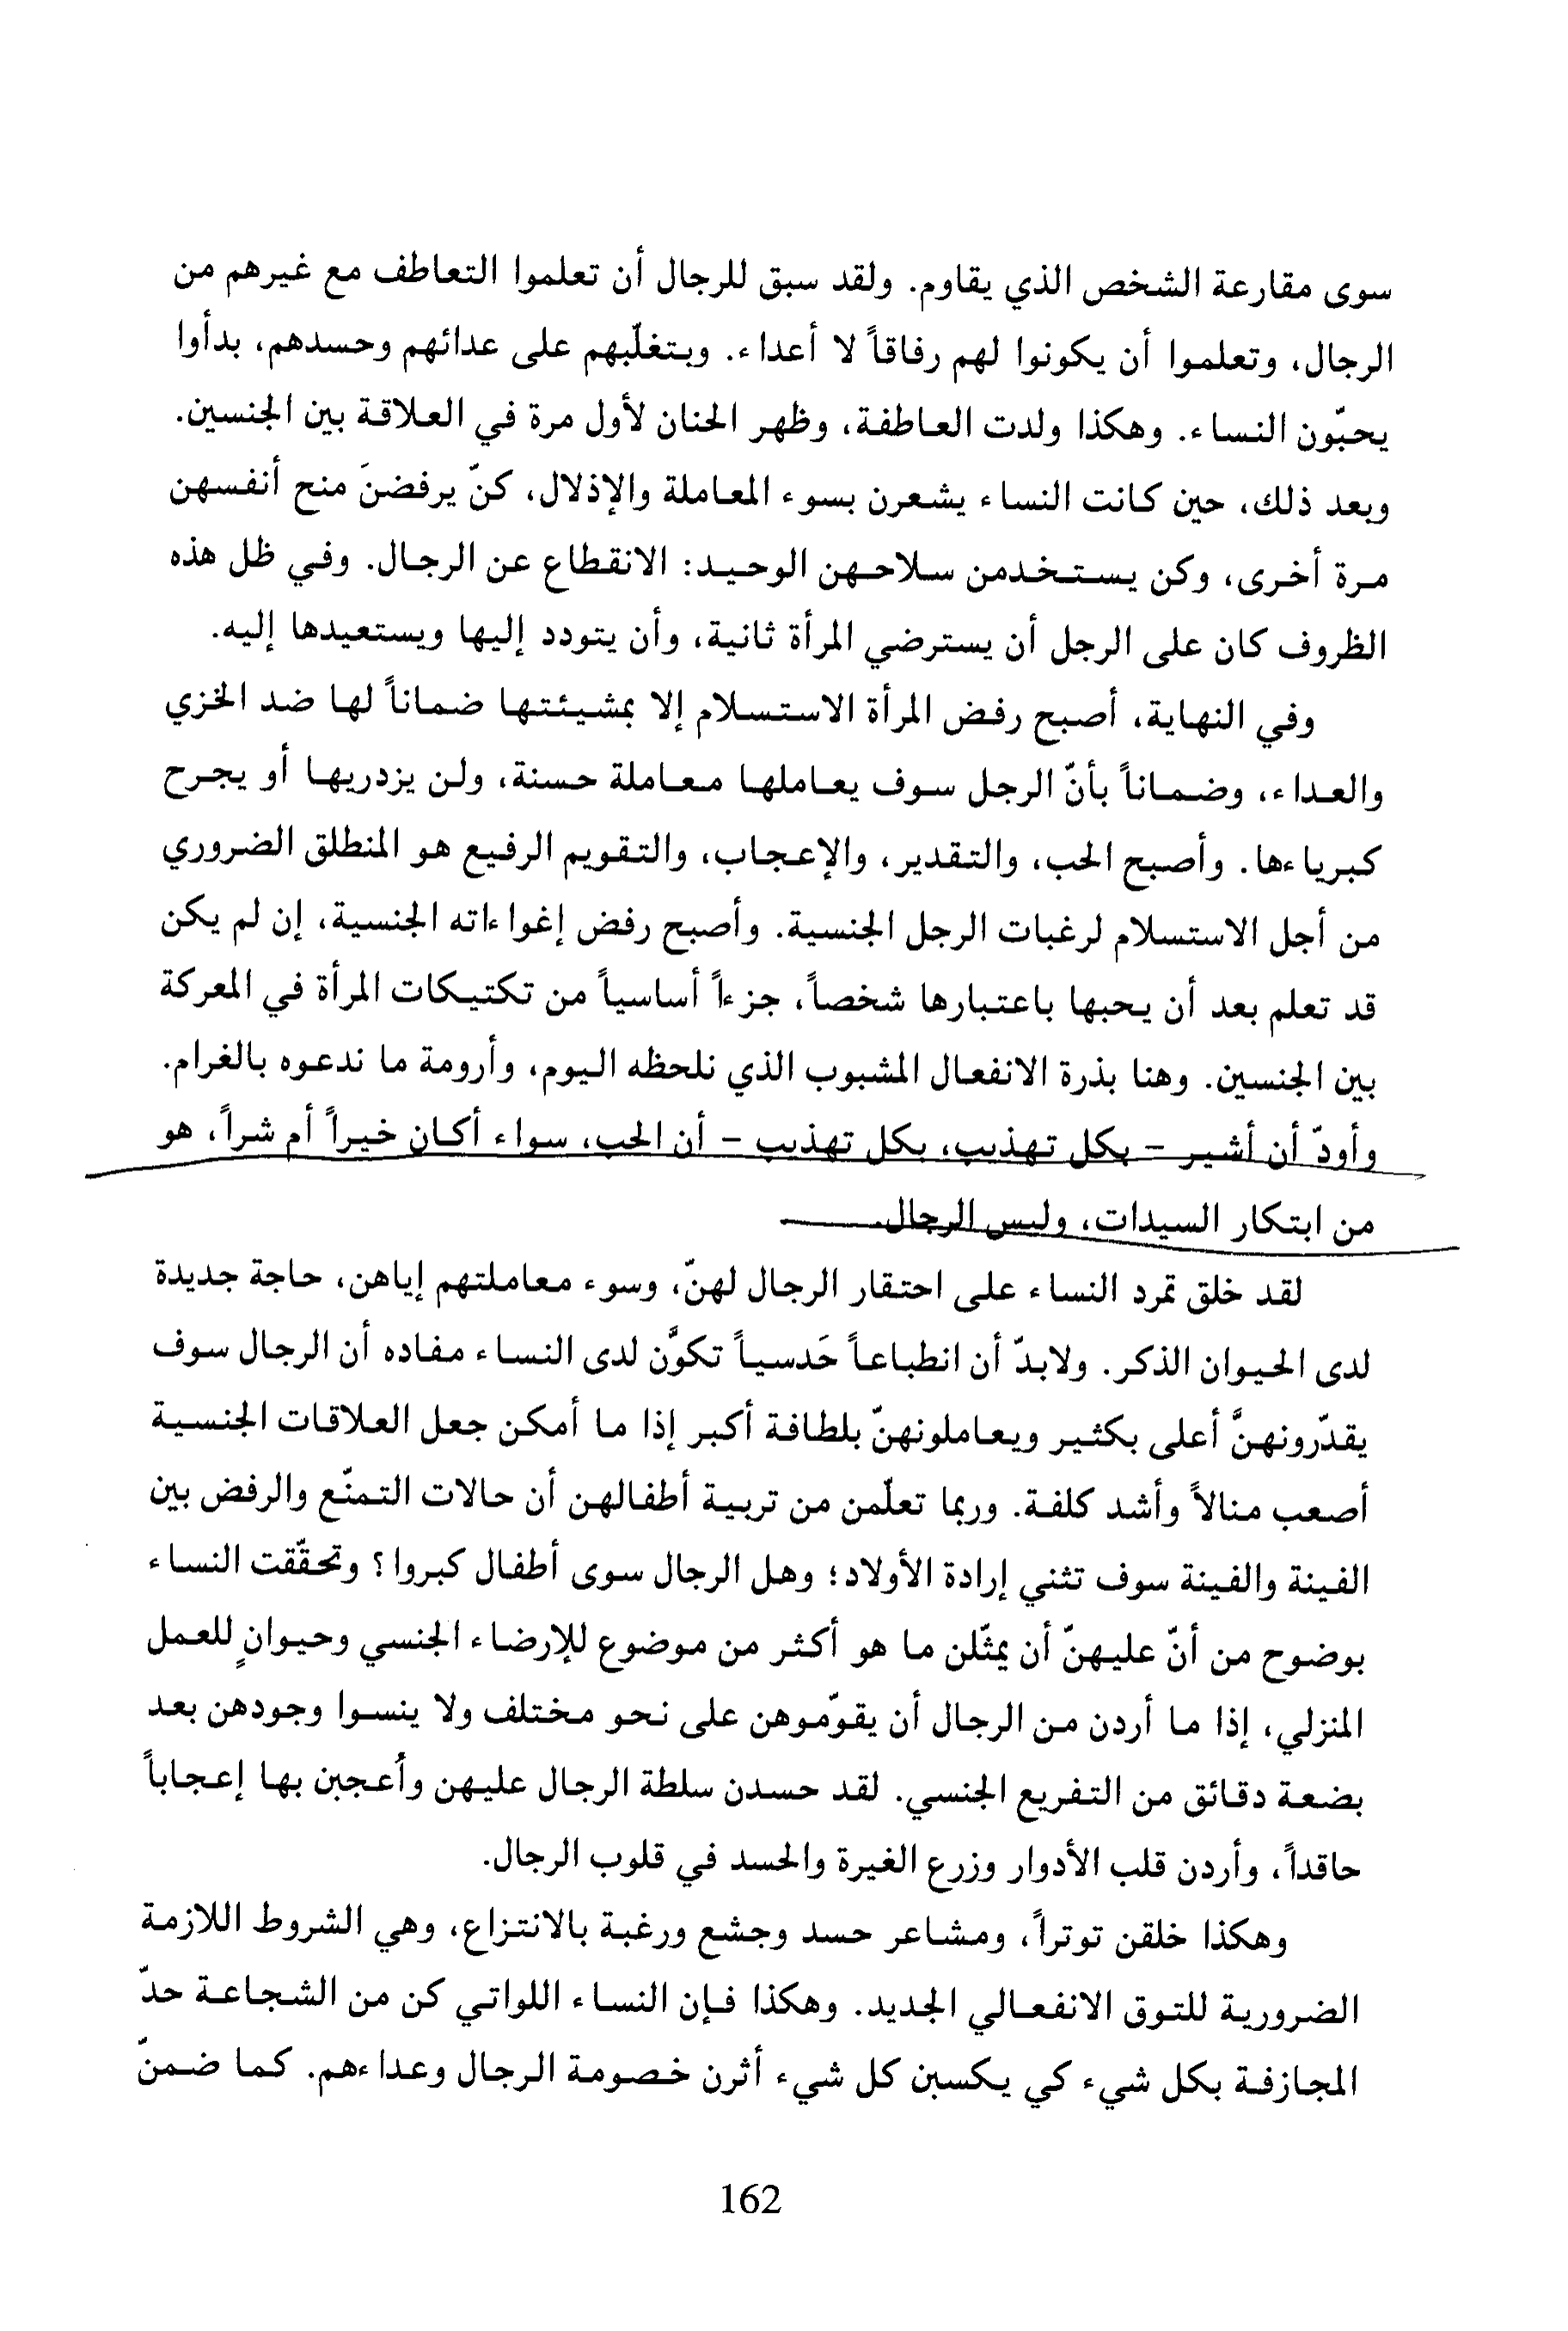 سوى مقارعة الشخص الذي يقاوم. ولقد سبق للرجال أن تعلموا التعاطف مع غيرهم من
الرجال، وتعلموا أن يكونوا لهم رفاقاً لا أعداء. وبتغلّبهم على عدائهم وحسدهم، بدأوا
يحبّون النساء. وهكذا ولدت العاطفة، وظهر الحنان لأول مرة في العلاقة بين الجنسين.
وبعد ذلك، حين كانت النساء يشعرن بسوء المعاملة والإذلال، كنّ يرفضنَ منح أنفسهن
مرة أخرى، وكن يستخدمن سلاحهن الوحيد: الانقطاع عن الرجال. وفي ظل هذه
الظروف كان على الرجل أن يسترضي المرأة ثانية، وأن يتودد إليها ويستعيدها إليه.
وفي النهاية، أصبح رفض المرأة الاستسلام إلا بمشيئتها ضماناً لها ضد الخزي
والعداء، وضماناً بأنّ الرجل سوف يعاملها معاملة حسنة، ولن يزدريها أو يجرح
كبرياءها. وأصبح الحب، والتقدير، والإعجاب، والتقويم الرفيع هو المنطلق الضروري
من أجل الاستسلام لرغبات الرجل الجنسية. وأصبح رفض إغواءاته الجنسية، إن لم يكن
قد تعلم بعد أن يحبها باعتبارها شخصاً، جزءاً أساسياً من تكتيكات المرأة في المعركة
بين الجنسين. وهنا بذرة الانفعال المشبوب الذي نلحظه اليوم، وأرومة ما ندعوه بالغرام.
وأودّ أن أشير - بكل تهذيب، بكل تهذيب - أن الحب، سواء أكان خيراً أم شراً، هو
من ابتكار السيدات، وليس الرجال.
لقد خلق تمرد النساء على احتقار الرجال لهنّ، وسوء معاملتهم إياهن، حاجة جديدة
لدى الحيوان الذكر. ولابدّ أن انطباعاً حَدسياً تكوَّن لدى النساء مفاده أن الرجال سوف
يقدّرونهنَّ أعلى بكثير ويعاملونهنّ بلطافة أكبر إذا ما أمكن جعل العلاقات الجنسية
أصعب منالاً وأشد كلفة. وربما تعلّمن من تربية أطفالهن أن حالات التمنّع والرفض بين
الفينة والفينة سوف تثني إرادة الأولاد؛ وهل الرجال سوى أطفال كبروا؟ وتحقّقت النساء
بوضوح من أنّ عليهنّ أن يمثّلن ما هو أكثر من موضوع للإرضاء الجنسي وحيوانٍ للعمل
المنزلي، إذا ما أردن من الرجال أن يقوّموهن على نحو مختلف ولا ينسوا وجودهن بعد
بضعة دقائق من التفريع الجنسي. لقد حسدن سلطة الرجال عليهن وأُعجبن بها إعجاباً
حاقداً، وأردن قلب الأدوار وزرع الغيرة والحسد في قلوب الرجال.
وهكذا خلقن توتراً، ومشاعر حسد وجشع ورغبة بالانتزاع، وهي الشروط اللازمة
الضرورية للتوق الانفعالي الجديد. وهكذا فإن النساء اللواتي كن من الشجاعة حدّ
المجازفة بكل شيء كي يكسبن كل شيء أثرن خصومة الرجال وعداءهم. كما ضمنّ
162